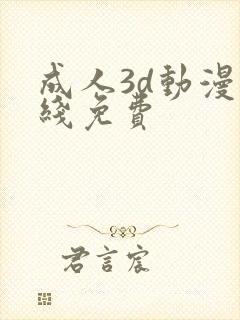 成人3d動漫
綫免費
君言宸